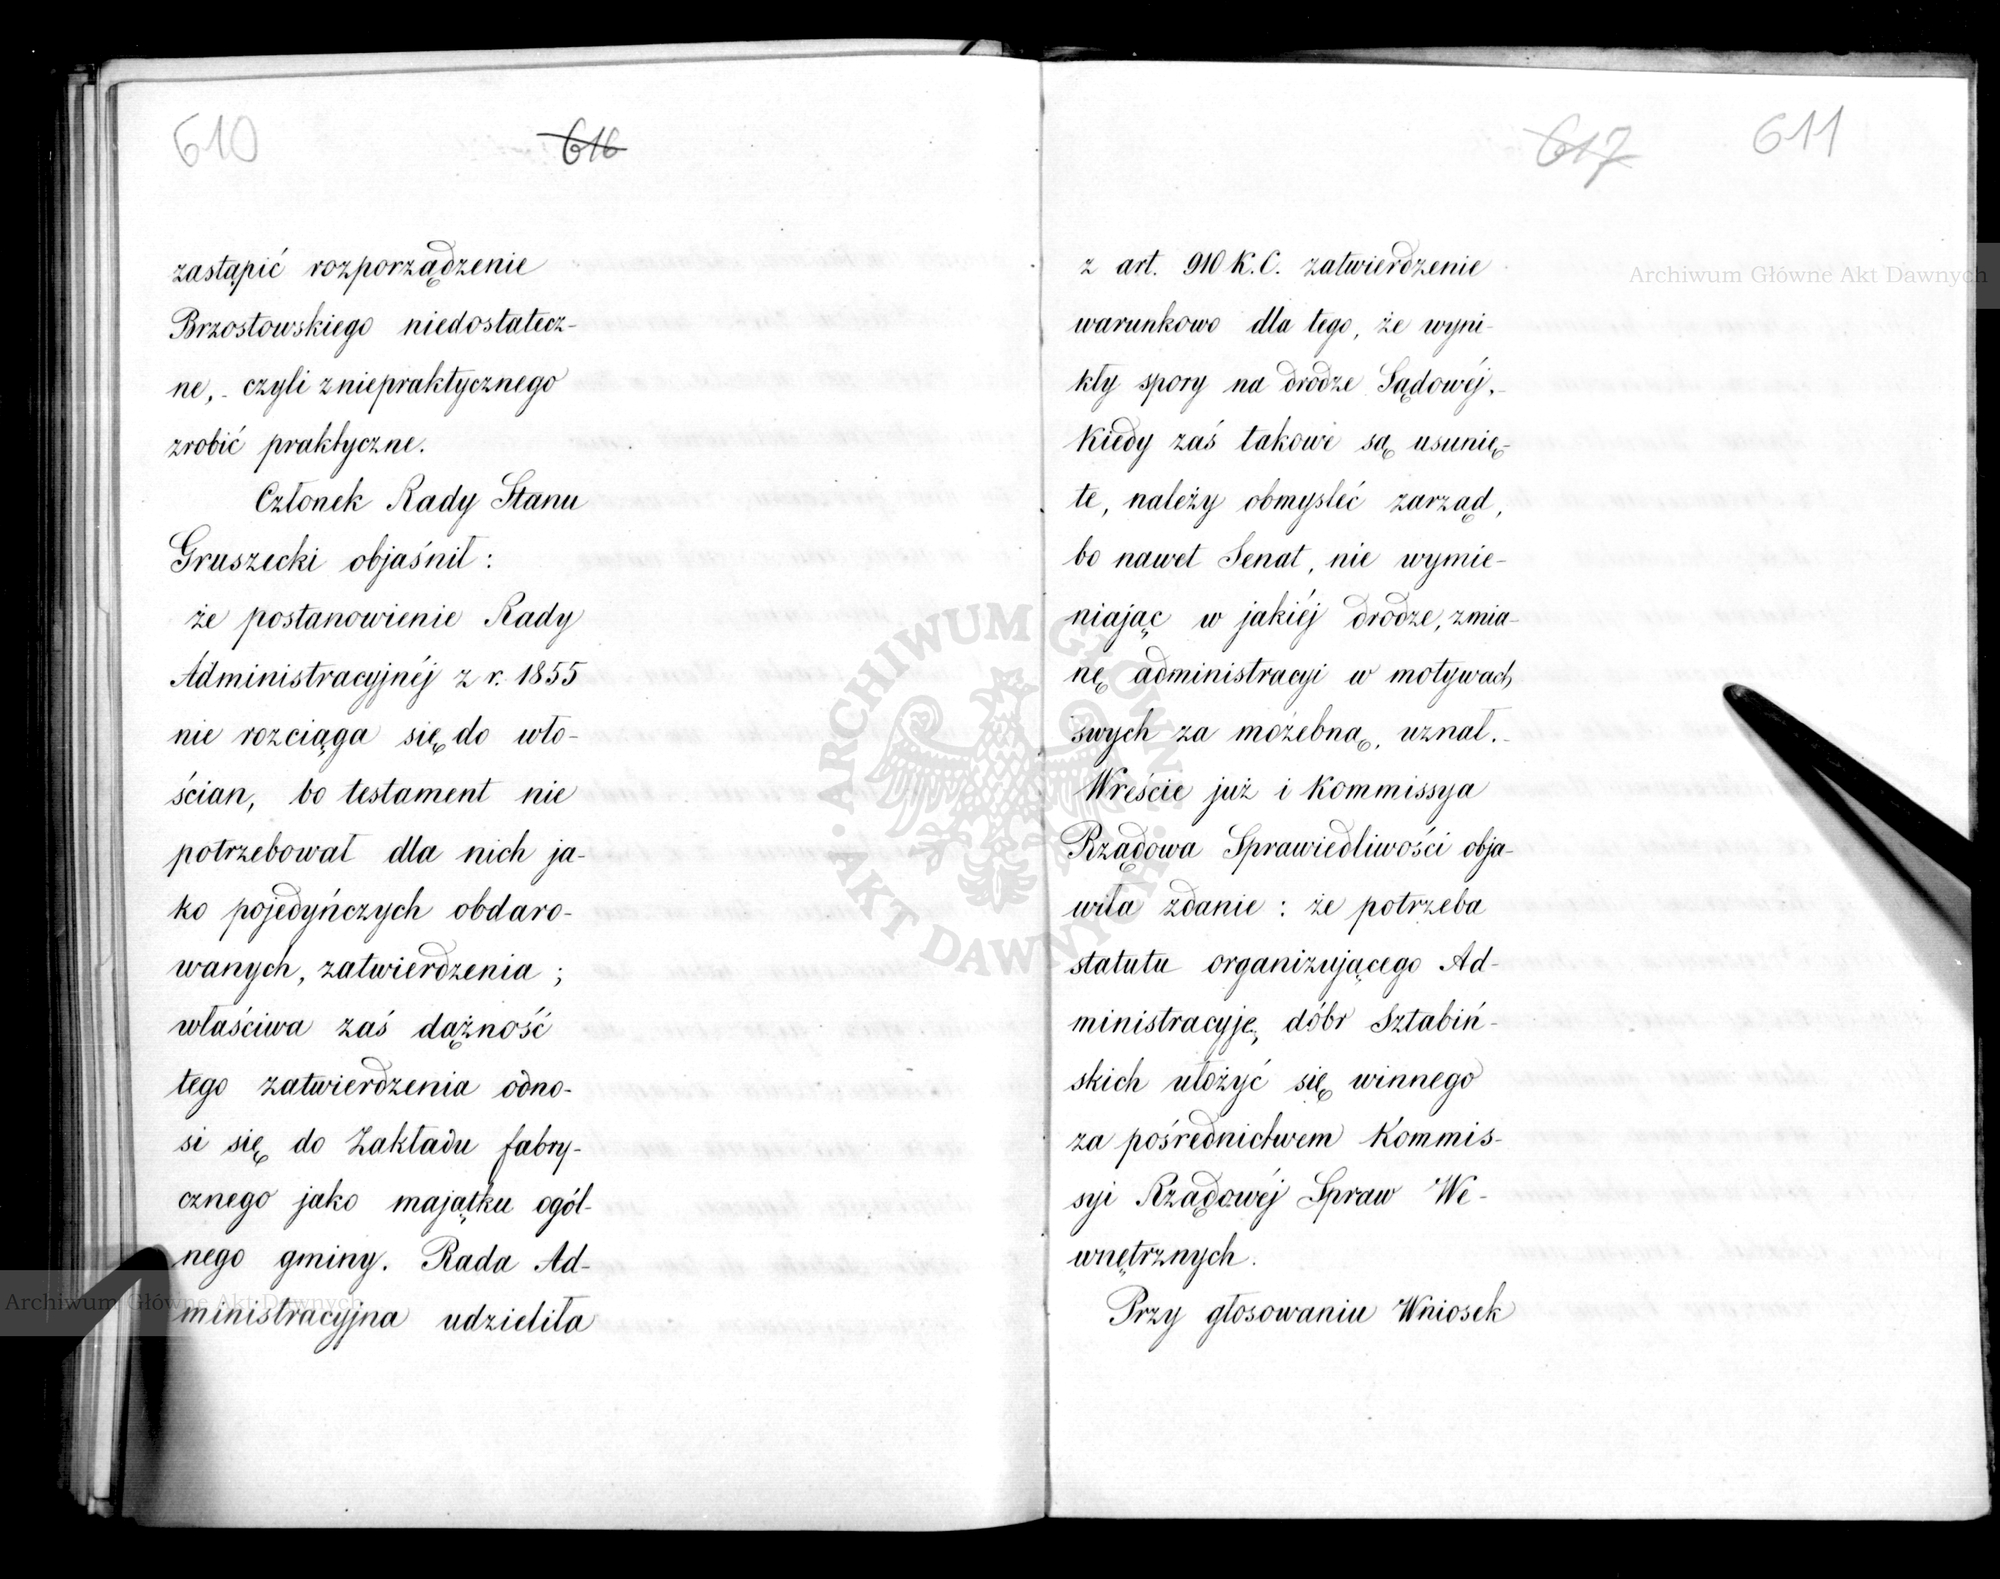 610
616
zastąpić rozporządzenie
Brzostowskiego niedostatecz-
ne,- czyli z niepraktycznego
zrobić praktyczne.
Członek Rady Stanu
Gruszecki objaśnił:
że postanowienie Rady
Administracyjnéj z r. 1855
nie rozciąga się do wło-
ścian, bo testament nie
potrzebował dla nich ja-
ko pojedyńczych obdaro-
wanych, zatwierdzenia;
właściwa zaś dążność
tego zatwierdzenia odno-
si się do Zakładu fabry-
cznego jako majątku ogól-
nego gminy. Rada Ad-
ministracyjna udzieliła
617
611
z art. 910 K.C. zatwierdzenie
warunkowo dla tego, że wyni-
kły spory na drodze Sądowéj.-
Kiedy zaś takowe są usunię-
te, należy obmysleć zarząd,
bo nawet Senat, nie wymie-
niając w jakiéj drodze, zmia-
nę administracyi w motywach
swych za możebną, uznał.-
Wreście już i Kommissya
Rządowa Sprawiedliwości obja-
wiła zdanie: że potrzeba
statutu organizującego Ad-
ministracyję, dóbr Sztabiń-
skich ułożyć się winnego
za pośrednictwem Kommis-
syi Rządowéj Spraw We-
wnętrznych.
Przy głosowaniu Wniosek
Archiwum Główne Akt Dawnych
Archiwum Główne Akt Dawnych
ARCHIWUM GŁÓWNE AKT DAWNYCH